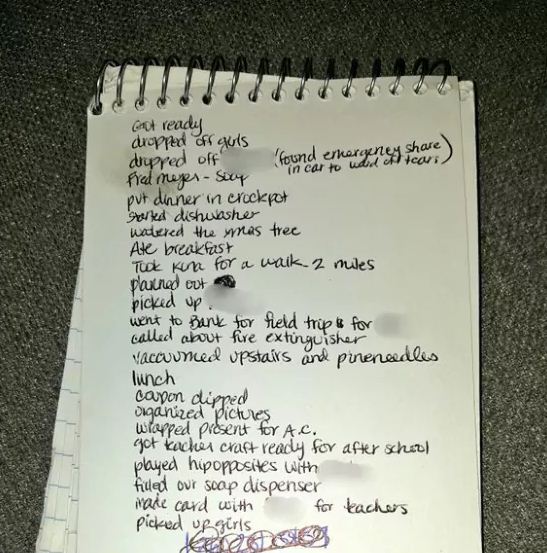 Got ready
dropped off girls
dropped off (found emergency share
in car to ward off tears)
Fred meyer - Soap
put dinner in crockpot
started dishwasher
watered the xmas tree
Ate breakfast
Took Kuna for a walk - 2 miles
planned out
picked up
went to Bank for field trip $ for
called about fire extinguisher
vaccuumed upstairs and pineneedles
lunch
coupon clipped
organized pictures
wrapped present for A.C.
got teacher craft ready for after school
played hipopposites with
filled our soap dispenser
made card with for teachers
picked up girls